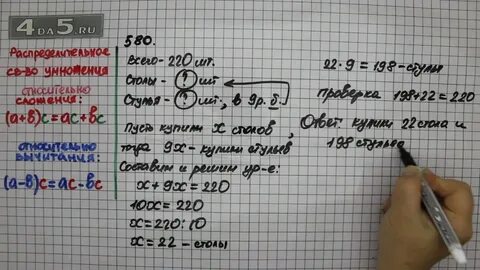 4DA5.RU
Распределительное
св-во умножения
относительно
сложения:
(a+b)c=ac+bc
относительно
вычитания:
(a-b)c=ac-bc
580.
Всего - 220 шт.
Столы - ? шт
Стулья - ? шт., в 9р. б.
Пусть купили x столов,
тогда 9x - купили стульев
Составим и решим ур-е:
x+9x=220
10x=220
x=220:10
x=22 - столы
22·9=198 - стулья
проверка 198+22=220
Ответ купили 22 стола и
198 стульев